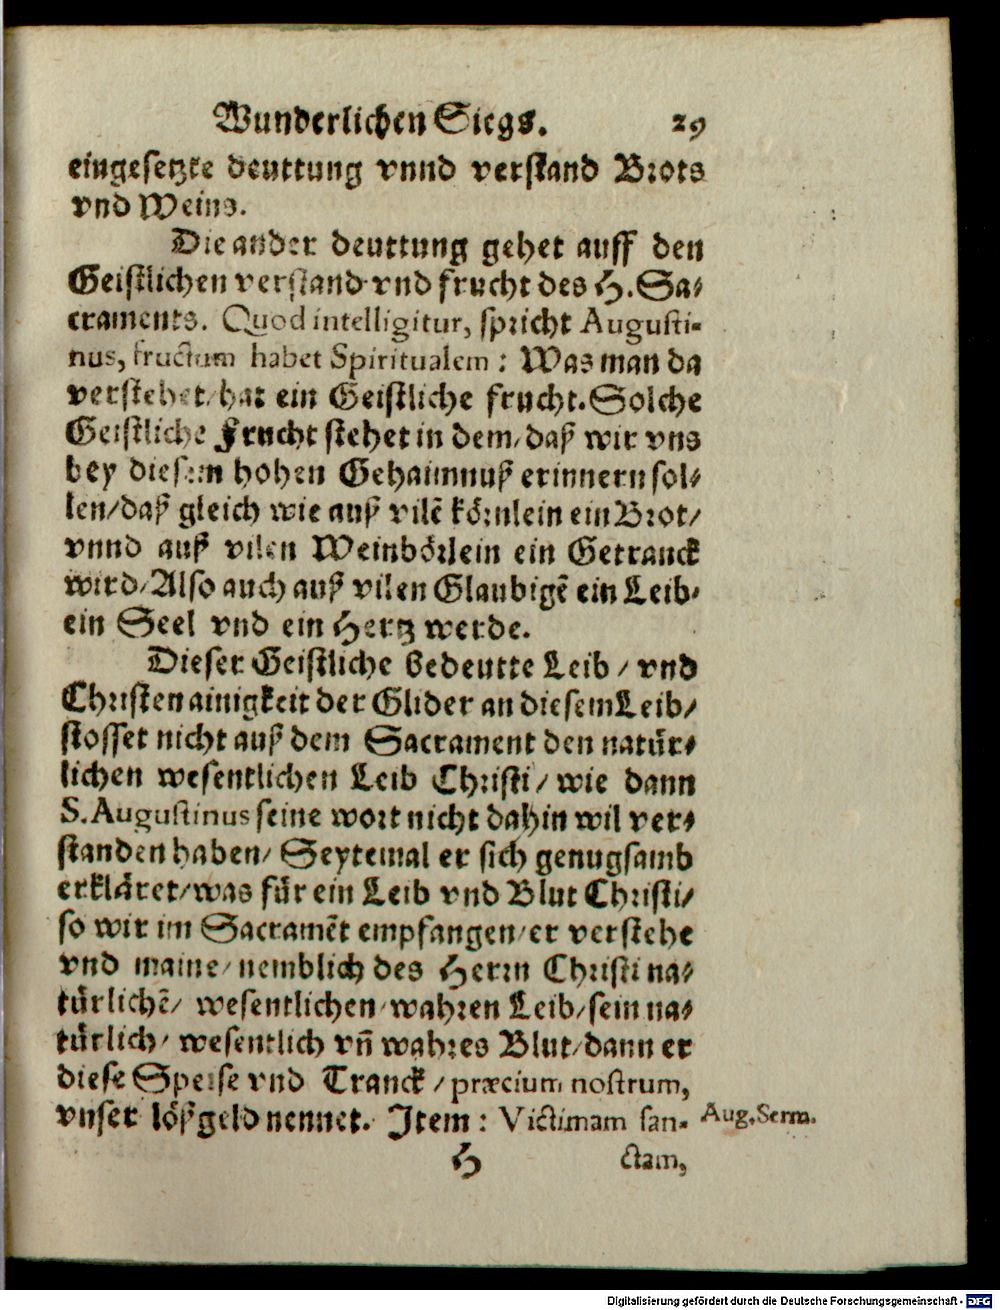 Wunderlichen Siegs. 29
eingesetzte deuttung vnnd verstand Brots
vnd Weins.
Die ander deuttung gehet auff den
Geistlichen verstand vnd frucht des H. Sa-
craments. Quod intelligitur, spricht Augusti-
nus, fructum habet Spiritualem: Was man da
verstehet/ hat ein Geistliche frucht. Solche
Geistliche Frucht stehet in dem/ daß wir vns
bey diesem hohen Gehaimnuß erinnern sol-
len/ daß gleich wie auß vilē körnlein ein Brot/
vnnd auß vilen Weinbörlein ein Getranck
wird/ Also auch auß vilen Glaubigē ein Leib/
ein Seel vnd ein Hertz werde.
Dieser Geistliche bedeutte Leib / vnd
Christen ainigkeit der Glider an diesem Leib/
stosset nicht auß dem Sacrament den natür-
lichen wesentlichen Leib Christi/ wie dann
S. Augustinus seine wort nicht dahin wil ver-
standen haben/ Seytemal er sich genugsamb
erkläret/ was für ein Leib vnd Blut Christi/
so wir im Sacramēt empfangen/ er verstehe
vnd maine/ nemblich des Herrn Christi na-
türlichē/ wesentlichen/ wahren Leib/ sein na-
türlich/ wesentlich vñ wahres Blut/ dann er
diese Speise vnd Tranck / præcium nostrum,
vnser lößgeld nennet. Item: Victimam san-
Aug. Serm.
H ctam,
Digitalisierung gefördert durch die Deutsche Forschungsgemeinschaft - DFG